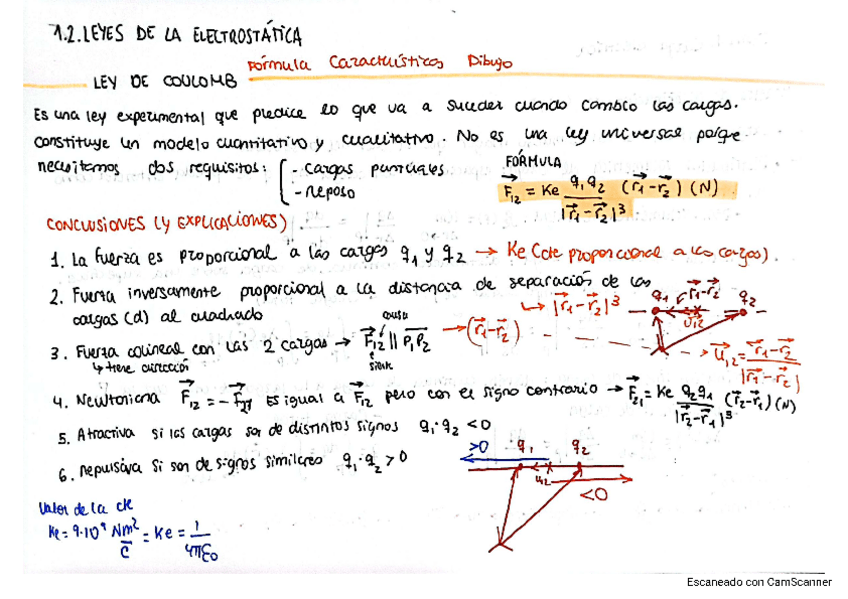 1.2. LEYES DE LA ELECTROSTÁTICA
Fórmula Características Dibujo
LEY DE COULOMB
Es una ley experimental que predice lo que va a suceder cuando cambio las cargas.
constituye un modelo cuantitativo y cualitativo. No es una ley universal porque
necesitamos dos requisitos: { - cargas puntuales
- reposo
FÓRMULA
F⃗12 = Ke q1 q2 / |r⃗1 - r⃗2|³ (r⃗1 - r⃗2) (N)
CONCLUSIONES (Y EXPLICACIONES)
1. La fuerza es proporcional a las cargas q1 y q2 → Ke (cte proporcional a las cargas).
2. Fuerza inversamente proporcional a la distancia de separación de las
cargas (d) al cuadrado ↳ |r⃗1 - r⃗2|³
q1 r⃗1 - r⃗2 q2
u⃗12
causa
3. Fuerza colineal con las 2 cargas → F⃗12 || P1P2 → (r⃗1 - r⃗2) → u⃗12 = r⃗1 - r⃗2 / |r⃗1 - r⃗2|
↳ tiene dirección siente
4. Newtoniana F⃗12 = - F⃗21 Es igual a F⃗12 pero con el signo contrario → F⃗21 = Ke q2 q1 / |r⃗2 - r⃗1|³ (r⃗2 - r⃗1) (N)
5. Atractiva si las cargas son de distintos signos q1 · q2 < 0
6. Repulsiva si son de signos similares q1 · q2 > 0
>0 q1 q2
u12
<0
Valor de la cte
Ke = 9·10⁹ Nm² / C = Ke = 1 / 4πε0
Escaneado con CamScanner